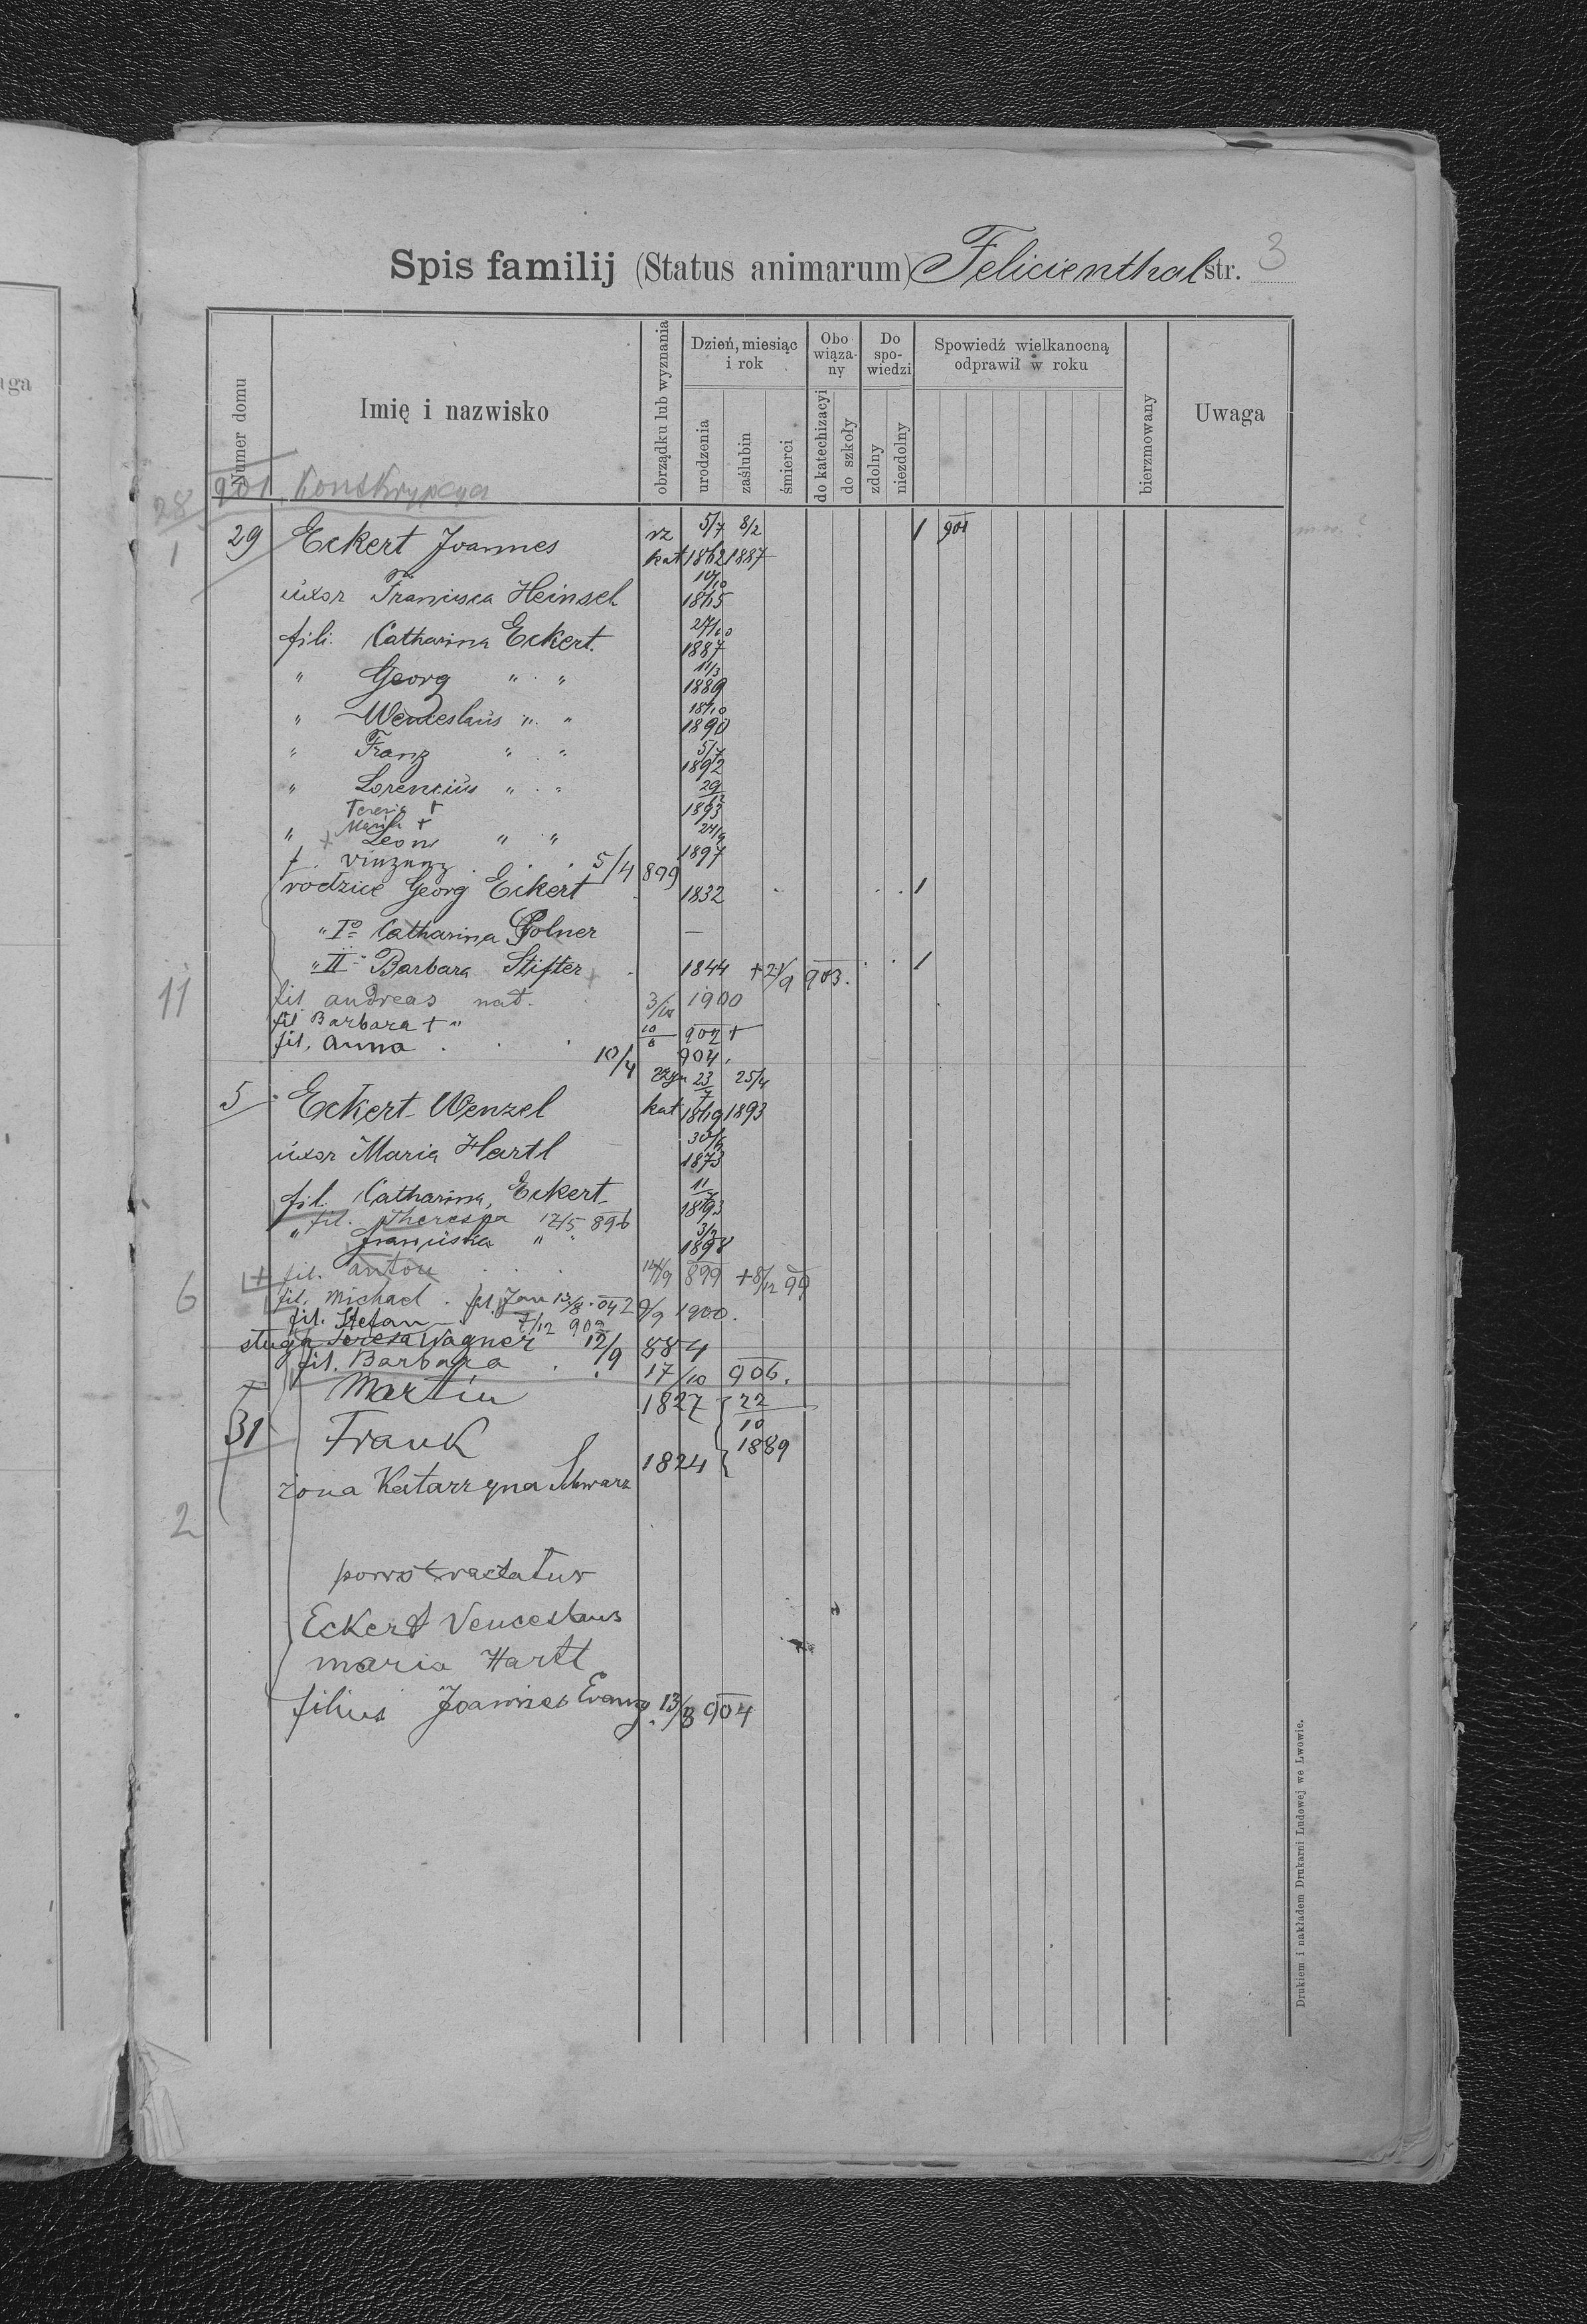 aga
Spis familij (Status animarum) Felicienthal str. 3
Numer domu
Imię i nazwisko
obrządku lub wyznania
Dzień, miesiąc i rok
urodzenia
zaślubin
śmierci
Obowiąza-ny
do katechizacyi
do szkoły
Do spo-wiedzi
zdolny
niezdolny
Spowiedź wielkanocną odprawił w roku
bierzmowany
Uwaga
901 Konskrypcya
28/1
29 Eckert Joannes rz kat 5/7 1862 8/2 1887 1 901
uxor Franciska Heinsel 10/10 1865
fili. Catharina Eckert. 27/10 1887
" Georg " " 11/3 1889
" Wenceslaus " " 18/10 1890
" Franz " " 5/7 1892
" Lorencius " " 29/12 1893
Teresia +
Maria +
" + Leon " " 24/9 1897
f. vinzenz . . . 5/4 899
rodzice Georg Eckert 1832 1
" Io Catharina Polner —
" II " Barbara Stifter + 1844 + 21/9 903. 1
11
fil andreas nat. 3/10 1900
fil Barbara + " 10/6 902 +
fil. anna . . . 10/4 904.
5 Eckert Wenzel rzym kat 23/7 1869 25/4 1893
uxor Maria Hartl 30/5 1873
fil. Catharina, Eckert 11/7 1893
" fil. Theresia 12/5 896
franciska " " 3/2 1898
+ fil. anton . . . 14/9 899 + 8/12 99
6
fil. Michael . fil. Jan 13/8 . 04 29/9 1900.
fil. Stefan — 7/12 902
sługa Teresa Wagner 12/9 884
fil. Barbara . . 17/10 906.
Martin 1827 { 22/10 1889
31 Frank
żona Katarzyna Schwarz 1824 }
2
porro tractatur
Eckert Venceslaus
maria Hartl
filius Joannes Evang. 13/8 904
Drukiem i nakładem Drukarni Ludowej we Lwowie.